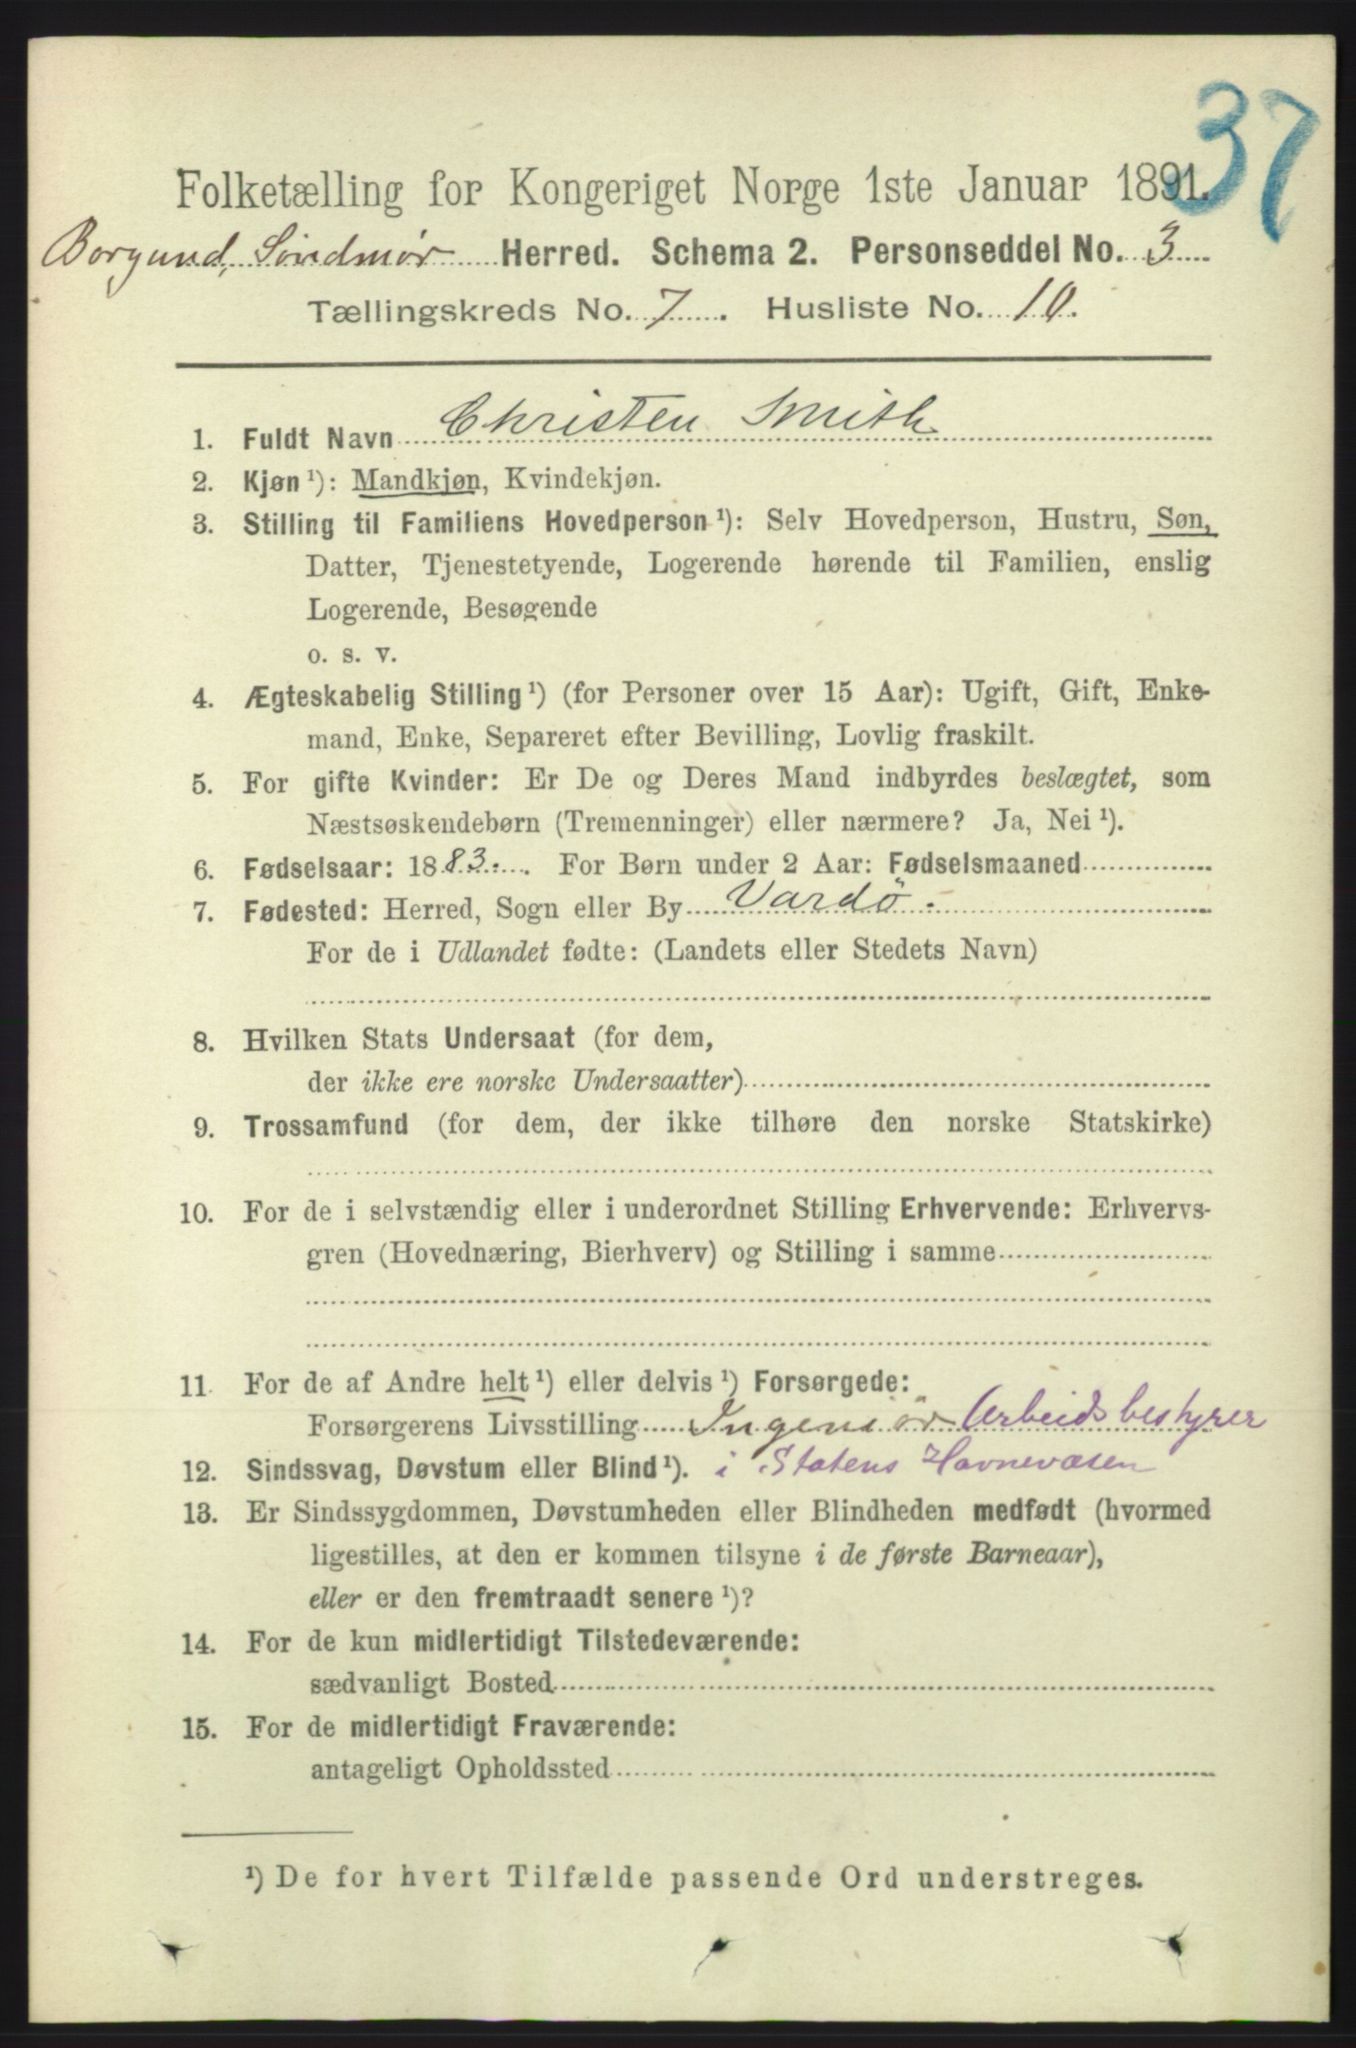 37
Folketælling for Kongeriget Norge 1ste Januar 1891.
Borgund, Söndmör Herred. Schema 2. Personseddel No. 3
Tællingskreds No. 7. Husliste No. 10.
1. Fuldt Navn Christen Smith
2. Kjøn ¹): Mandkjøn, Kvindekjøn.
3. Stilling til Familiens Hovedperson ¹): Selv Hovedperson, Hustru, Søn,
Datter, Tjenestetyende, Logerende hørende til Familien, enslig
Logerende, Besøgende
o. s. v.
4. Ægteskabelig Stilling ¹) (for Personer over 15 Aar): Ugift, Gift, Enke-
mand, Enke, Separeret efter Bevilling, Lovlig fraskilt.
5. For gifte Kvinder: Er De og Deres Mand indbyrdes beslægtet, som
Næstsøskendebørn (Tremenninger) eller nærmere? Ja, Nei ¹).
6. Fødselsaar: 1883. For Børn under 2 Aar: Fødselsmaaned
7. Fødested: Herred, Sogn eller By Vardö.
For de i Udlandet fødte: (Landets eller Stedets Navn)
8. Hvilken Stats Undersaat (for dem,
der ikke ere norske Undersaatter)
9. Trossamfund (for dem, der ikke tilhøre den norske Statskirke)
10. For de i selvstændig eller i underordnet Stilling Erhvervende: Erhvervs-
gren (Hovednæring, Bierhverv) og Stilling i samme
11. For de af Andre helt ¹) eller delvis ¹) Forsørgede:
Forsørgerens Livsstilling Ingeniör Arbeidsbestyrer
12. Sindssvag, Døvstum eller Blind ¹). i Statens Havnevæsen
13. Er Sindssygdommen, Døvstumheden eller Blindheden medfødt (hvormed
ligestilles, at den er kommen tilsyne i de første Barneaar),
eller er den fremtraadt senere ¹)?
14. For de kun midlertidigt Tilstedeværende:
sædvanligt Bosted
15. For de midlertidigt Fraværende:
antageligt Opholdssted
¹) De for hvert Tilfælde passende Ord understreges.